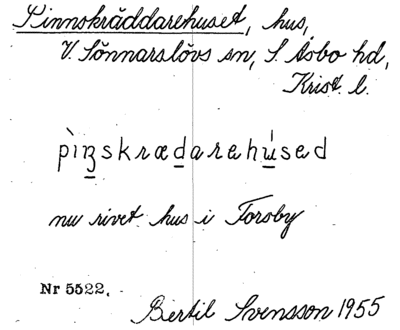 Pinnskräddarehuset, hus,
V. Sönnarslövs sn, S. Åsbo hd,
Krist. l.
pìn̲skræd̲arehú̲sed
nu rivet hus i Forsby
Nr 5522.
Bertil Svensson 1955